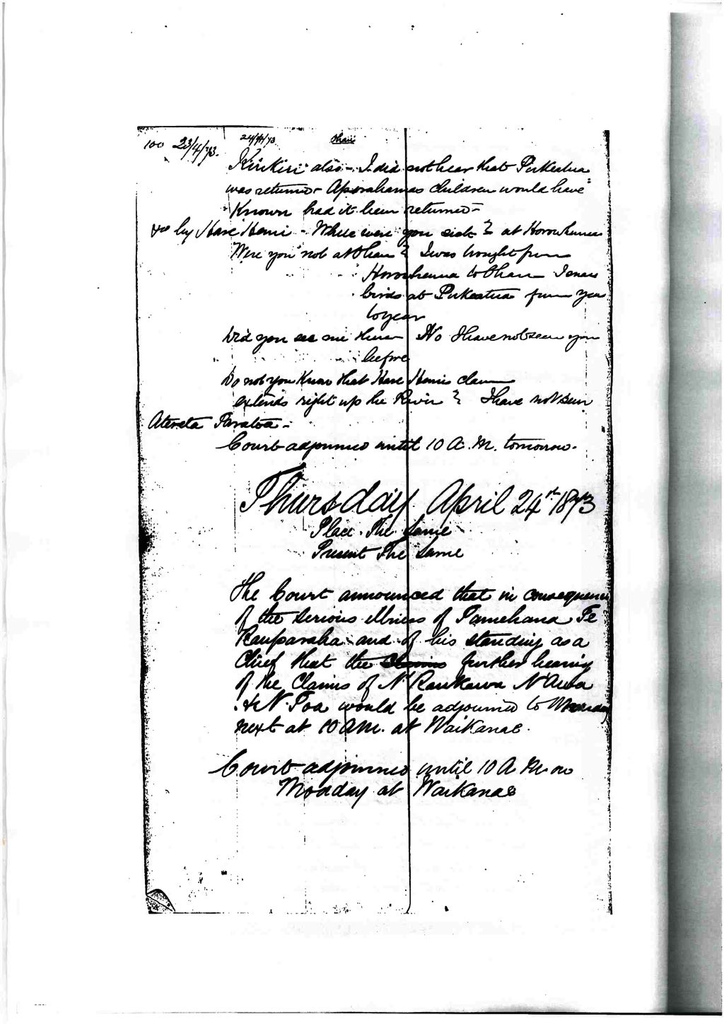 100 23/4/73. 24/4/73 Otaki
Kirikiri also - I did not hear that Pukeatua
was returned - Aperahamas children would have
Known had it been returned -
by Hare Hemi - Where were you at Horowhenua
Were you not at Ohau ? I was brought from
Horowhenua to Ohau I snare
birds at Pukeatua from year
to year
Did you see me there No I have not seen you
before
Do not you Know that Hare Hemis claim
extends right up the River ? I have not seen
Court adjourned until 10 A.M. tomorrow -
Thursday April 24th 1873
Place The Same
Present The Same
The Court announced that in consequence
of the serious illness of Tamehana Te
Rauparaha and of his standing as a
Chief that the further hearing
of the Claims of N' Raukawa N'Awa
& N'Toa would be adjourned to Monday
next at 10 AM. at Waikanae.
Court adjourned until 10 A.M on
Monday at Waikanae